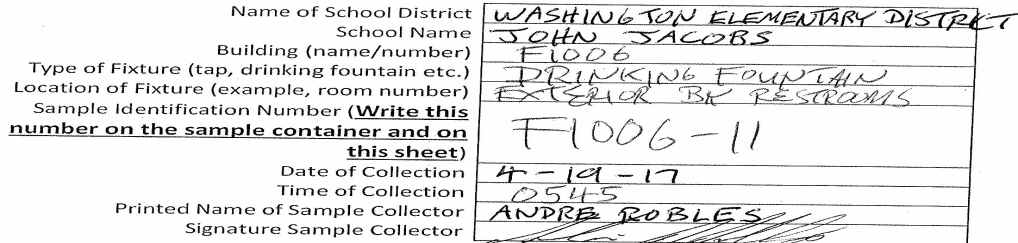 Name of School District WASHINGTON ELEMENTARY DISTRICT
School Name JOHN JACOBS
Building (name/number) F1006
Type of Fixture (tap, drinking fountain etc.) DRINKING FOUNTAIN
Location of Fixture (example, room number) EXTERIOR BY RESTROOMS
Sample Identification Number (Write this
number on the sample container and on F1006-11
this sheet)
Date of Collection 4-19-17
Time of Collection 0545
Printed Name of Sample Collector ANDRE ROBLES
Signature Sample Collector